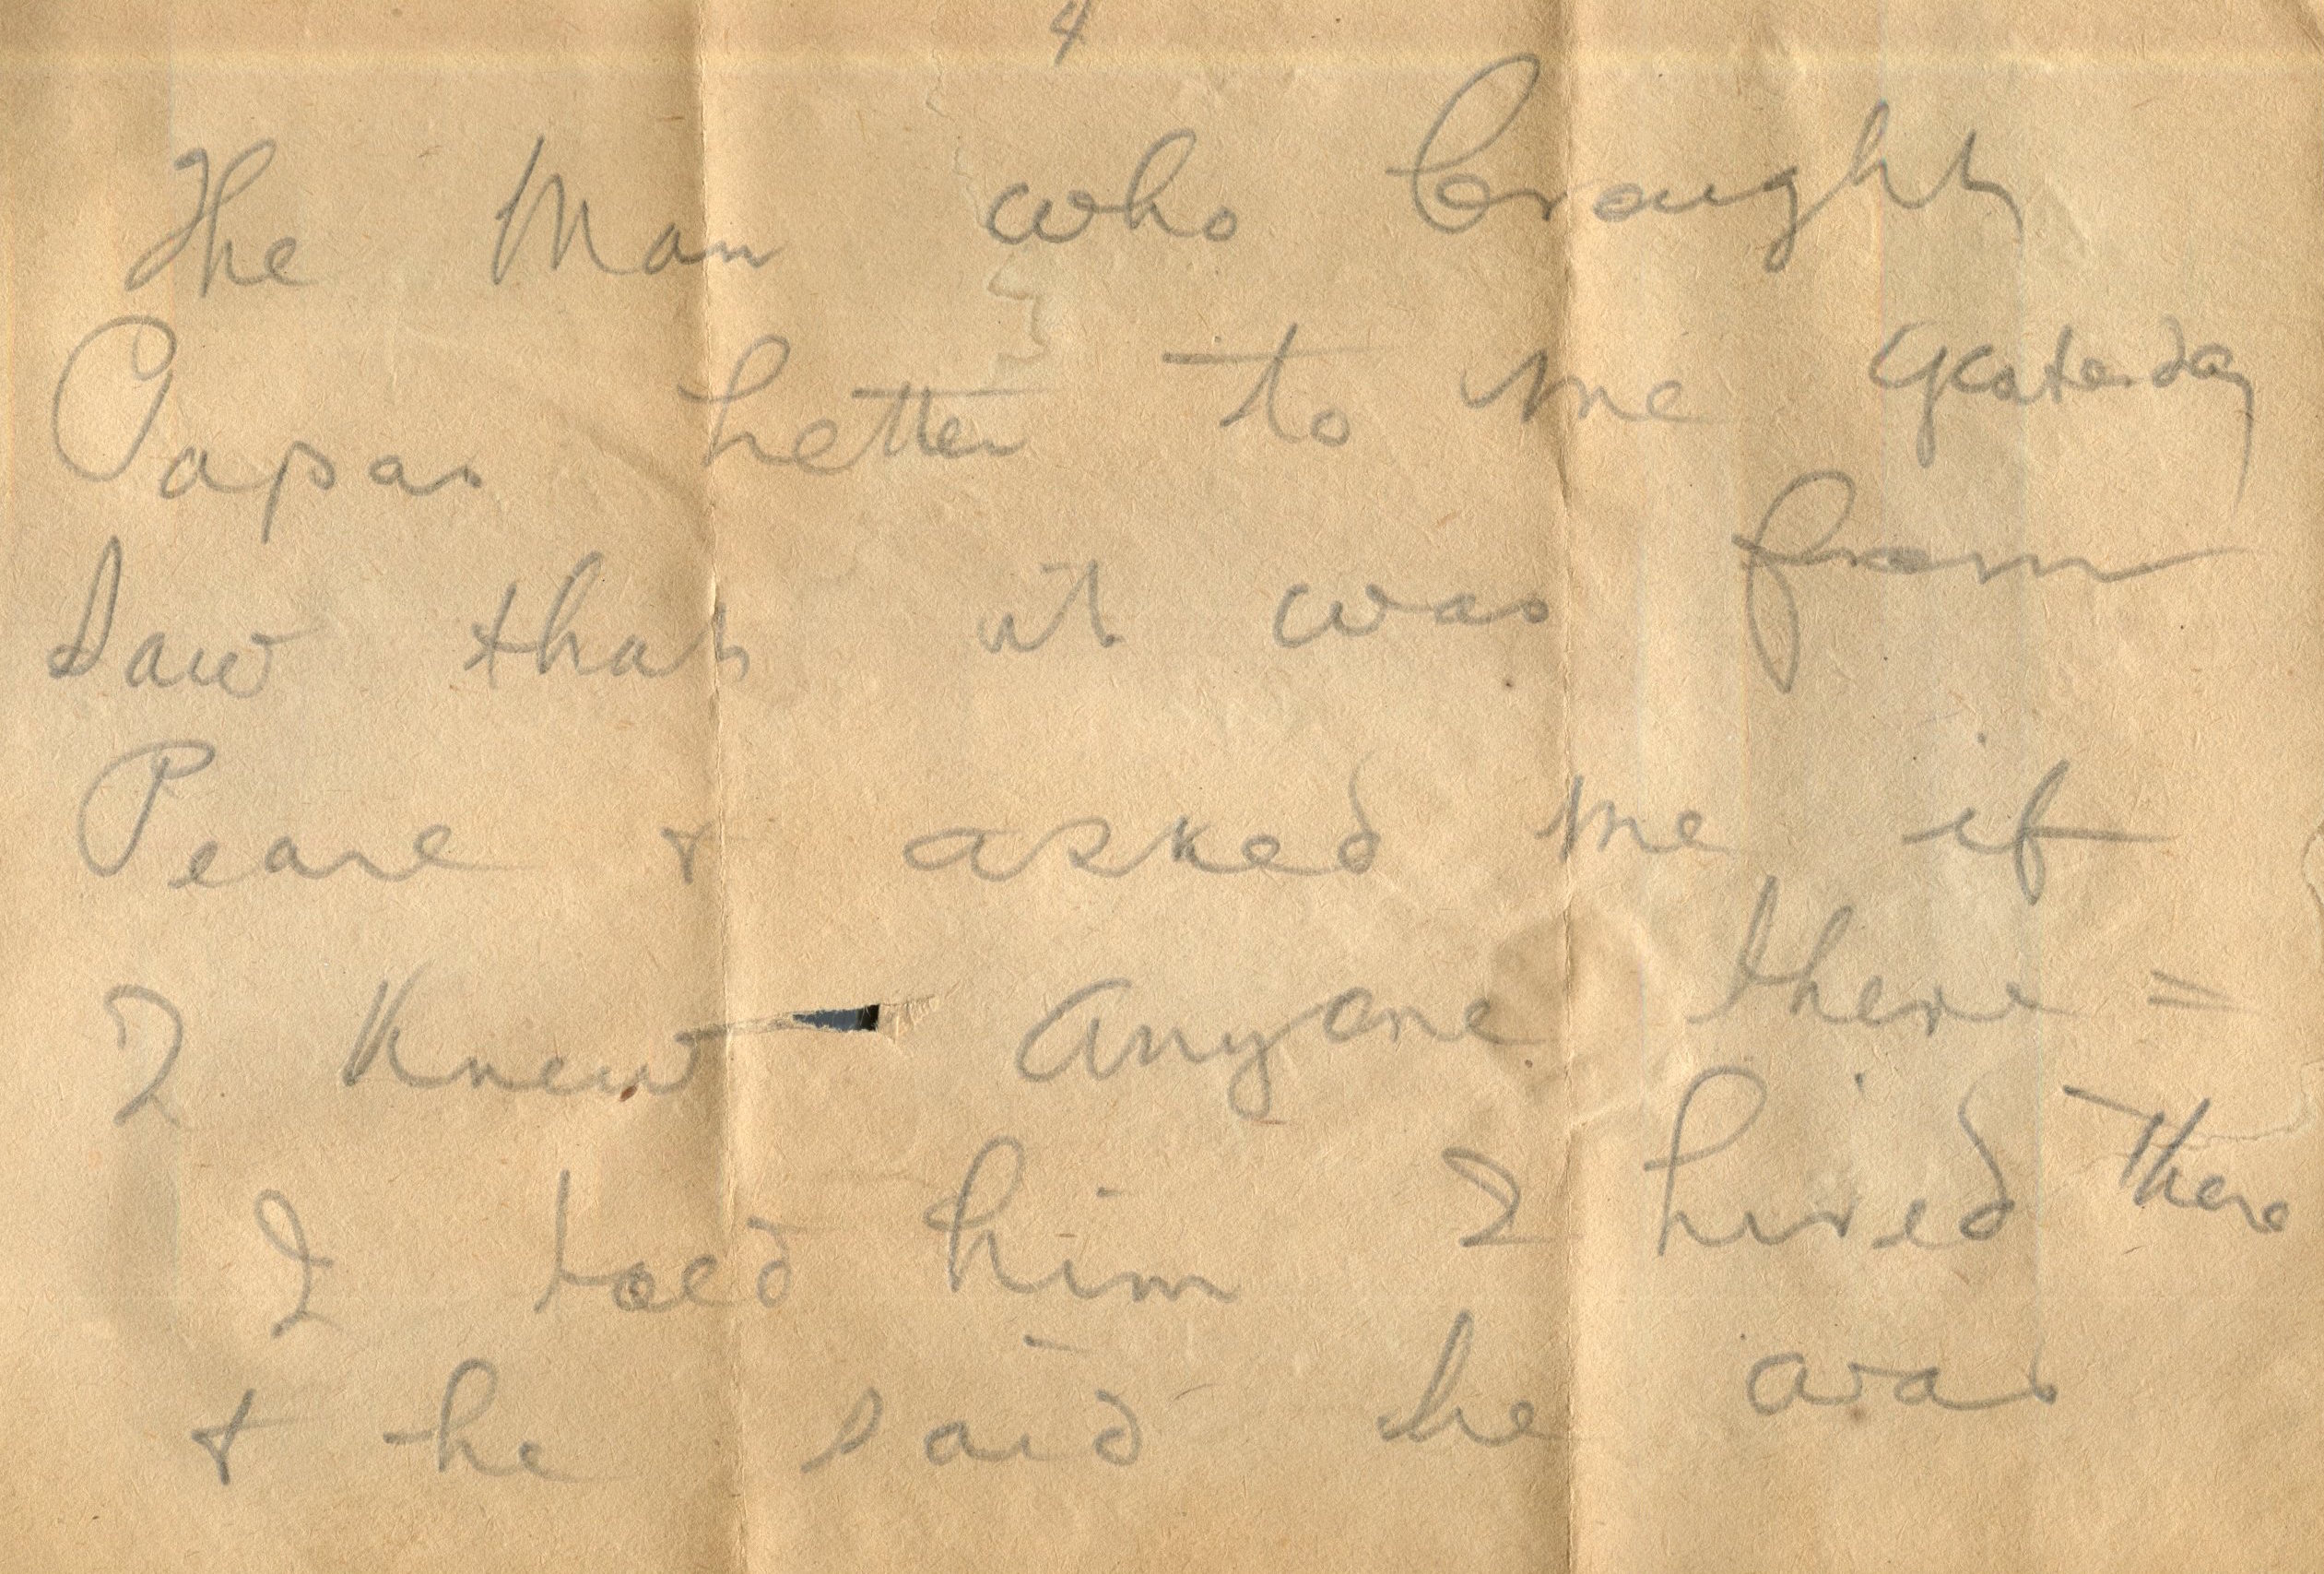 4
The Man who brought
Papas Letter to me Yesterday
Saw that it was from
Pearl + asked me if
I Knew Anyone there =
I told him I Lived There
+ he said he was